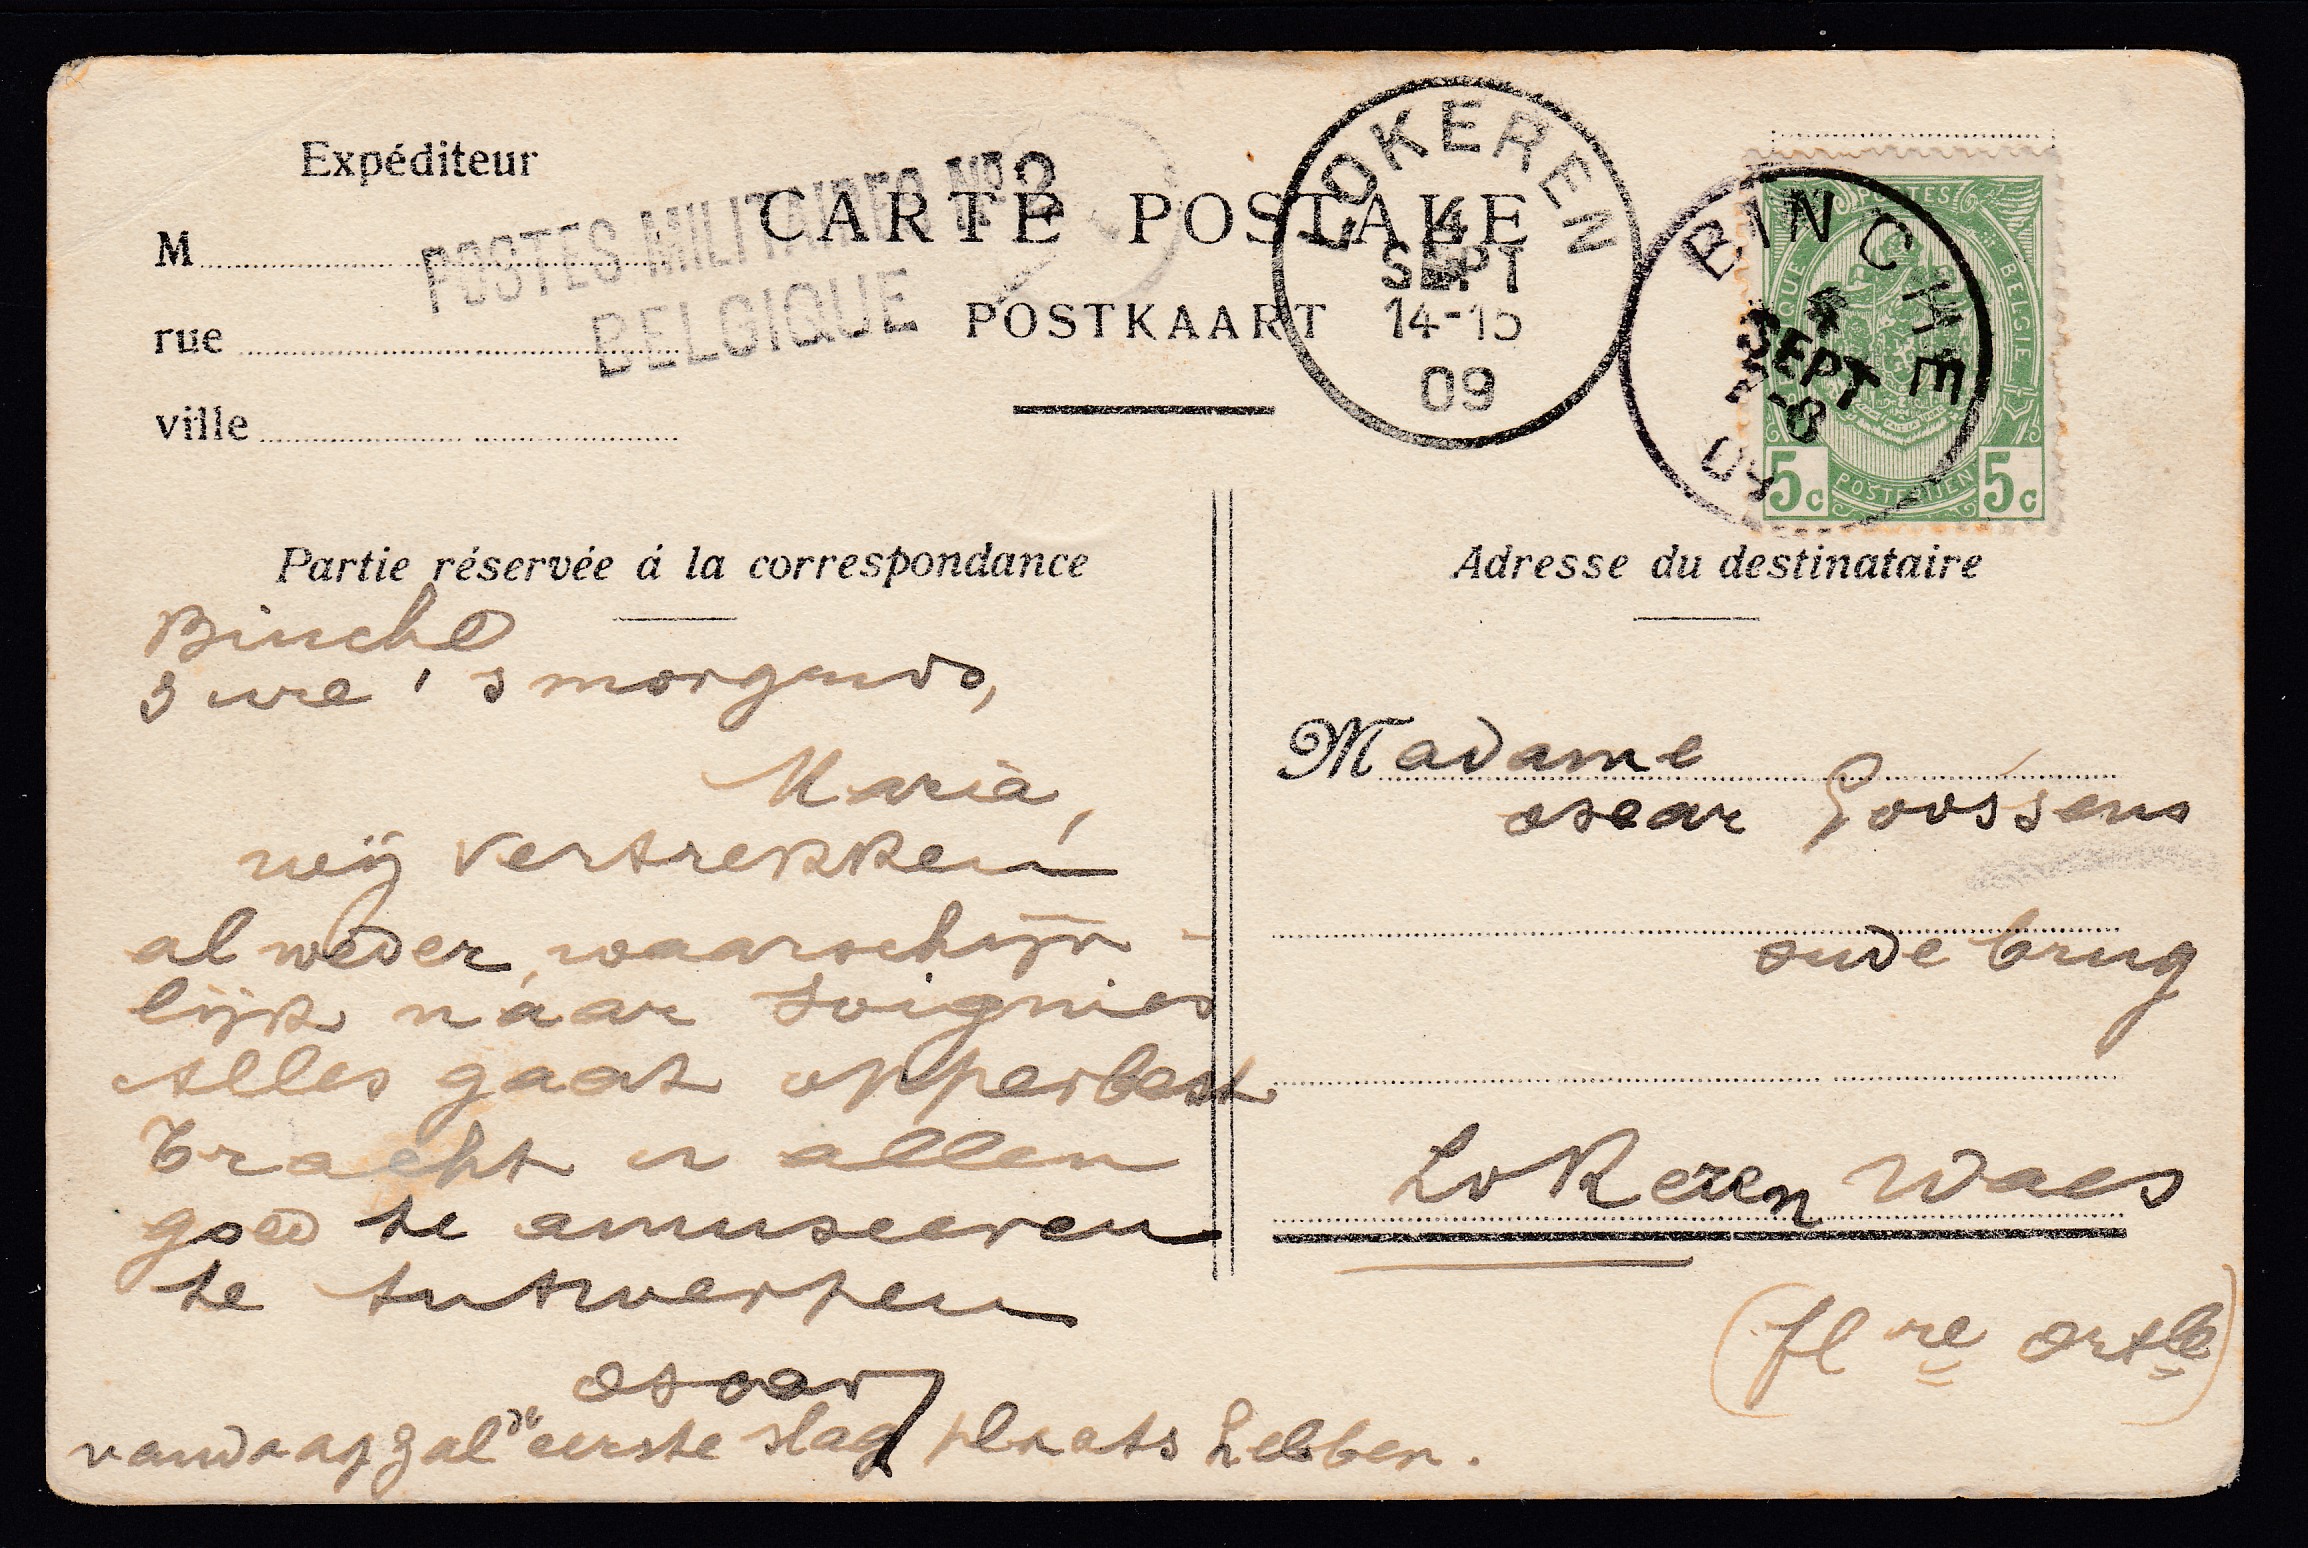 Expéditeur
M
rue
ville
POSTES MILITAIRES Nº 2
BELGIQUE
CARTE POSTALE
POSTKAART
LOKEREN
4
SEPT
14-15
09
BINCHE
4
SEPT
7-8
09
POSTES
BELGIQUE
BELGIË
5c POSTERIJEN 5c
Partie réservée á la correspondance
Binche
3 ure 's morgends,
Maria,
wij vertrekken
al weder, waarschijn-
lijk naar Soignies
Alles gaat opperbest
Tracht u allen
goed te amuseeren
te Antwerpen
Oscar
vandaag zal de eerste slag plaats hebben.
Adresse du destinataire
Madame
Oscar Goossens
oude brug
Lokeren Waes
(fl re Orle)